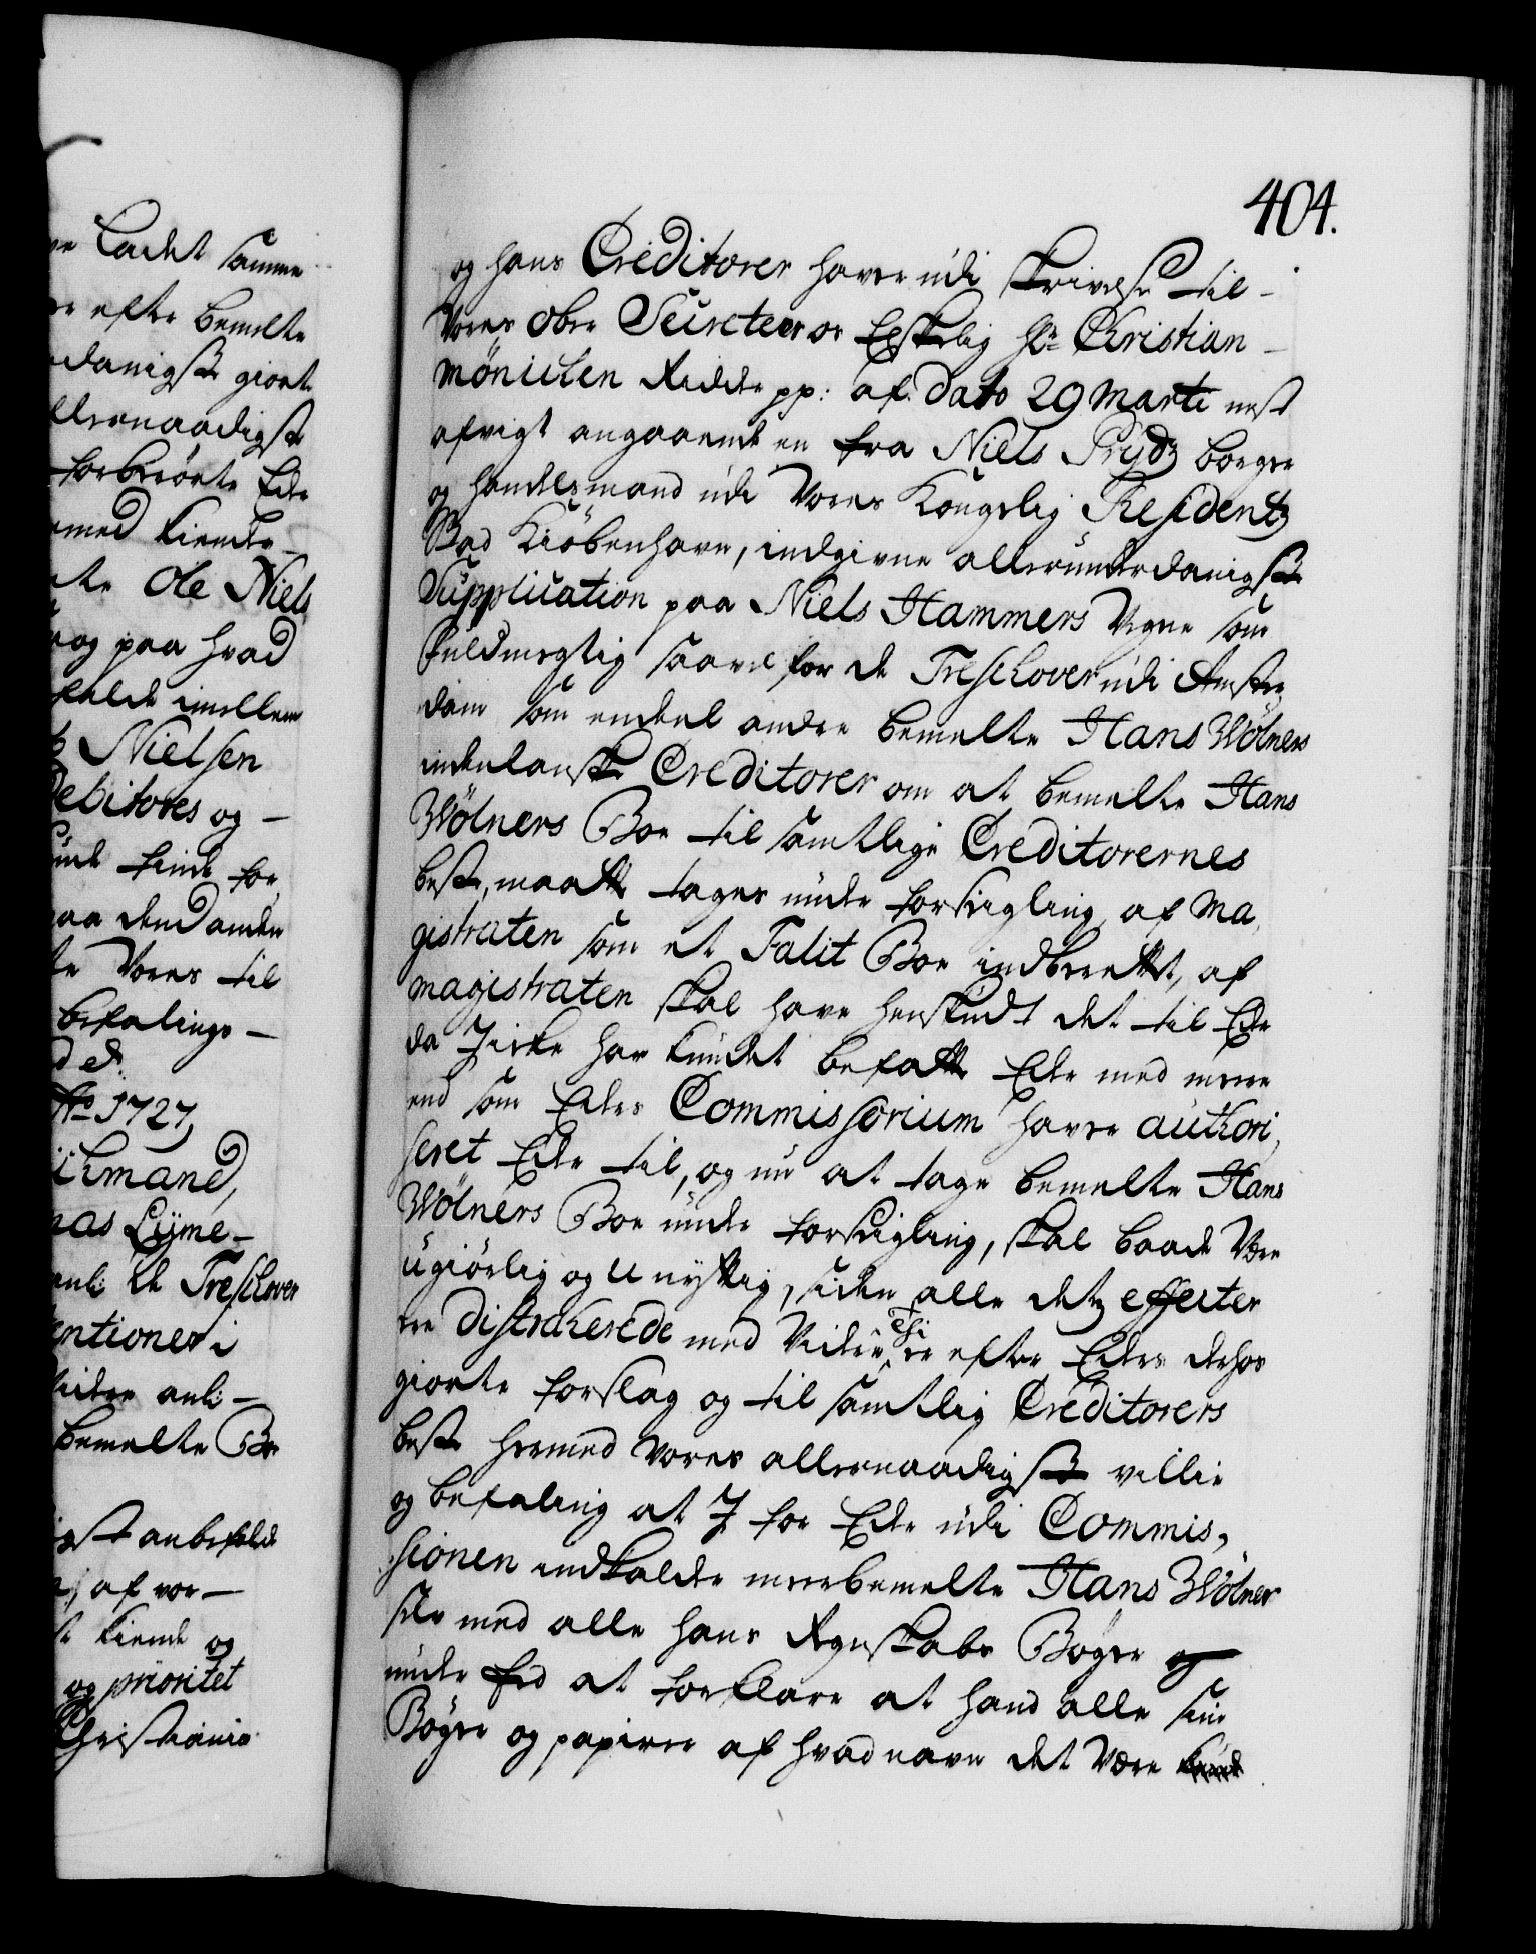 404.
og hans Creditorer haver udi skrivelse til
Vores Ober Secreteer os Elskelig Hr Christian
Mönichen Ridder pp: af Dato 29 Marti nest
afvigt angaaende en fra Niels Prydz borger
og handelsmand udi Vores Kongelig Residentz
Stad Kiöbenhavn, indgivne allerunderdanigste
Supplication paa Niels Hammers Vegne som
fuldmegtig saavel for de Treschover udi Amster
dam som endeel andre bemelte Hans Wölners
indenlanske Creditorer om at bemelte Hans
Wölners Boe til samtlige Creditorernes
beste, maatte tages under forseigling, af Ma
gistraten som et Falit Boe indberettet, af
magistraten skal have henskudt det til Eder
da J icke har kundet befatte Eder med meere
end som Eders Commissorium haver authori,
seret Eder til, og nu at tage bemelte Hans
Wölners Boe under forseigling, skal baade Være
ugiörlig og Unyttig, siden alle detz effecter
ere distraherede med Videre
er efter Eders derhos
giorte forslag og til samtlig Creditorers
beste hermed Vores allernaadigste villie
og befaling at J for Eder udi Commis,
sionen indkalder meerbemelte Hans Wölner
selv med alle hans Regnskabs Böger og
under Eed at forklare at hand alle sine
Böger og papirer af hvad navn det Være

ve ladet samme
er efter bemelte
danigste giort
llernaadigst
forberörte Eder
med kiende
ole Niels
og paa hvad
falde imellem
Nielsen
Debitores og
finde for
aa dend anden
te Vores til
befalings
ded.
1727,
ichmand,
as Lyme
anl: de Treschover
entioner i
videre anl:
bemelte Bo
st anbefalede
af vor
kiende og
og prioritet
Christiania